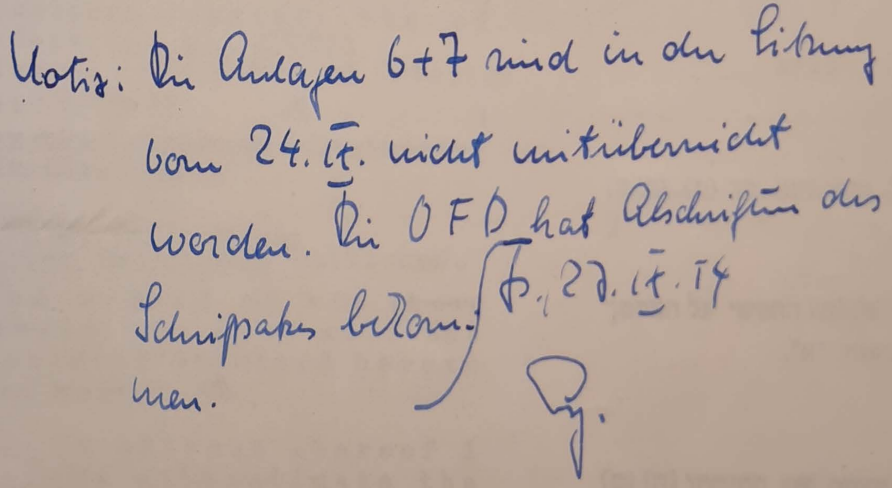 Notiz: Die Anlagen 6+7 sind in der Sitzung
vom 24. IX. nicht mitüberreicht
worden. Die OFD hat Abschriften des
Schriftsatzes bekom-
men.
27. IX. 54